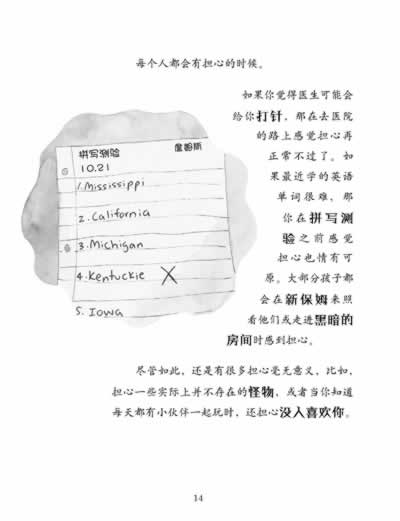 每个人都会有担心的时候。
如果你觉得医生可能会
给你打针，那在去医院
的路上感觉担心再
正常不过了。如
果最近学的英语
单词很难，那
你在拼写测
验之前感觉
担心也情有可
原。大部分孩子都
会在新保姆来照
看他们或走进黑暗的
房间时感到担心。
拼写测验 詹姆斯
10.21
1.Mississippi
2.California
3.Michigan
4.Kentuckie X
5. Iowa
尽管如此，还是有很多担心毫无意义，比如，
担心一些实际上并不存在的怪物，或者当你知道
每天都有小伙伴一起玩时，还担心没人喜欢你。
14